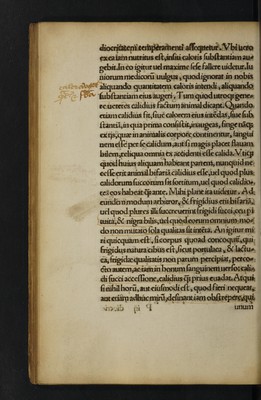 diocritatem temperamenti assequetur. Vbi uero
ex ea iam nutritus est, insiti caloris substantiam au-
gebit. In eo igitur uel maxime sese fallere uidetur Iu
niorum medicorũ uulgus, quod ignorat in nobis
aliquando quantitatem caloris intendi, aliquando
substantiam eius augeri. Tum quod utroq; gene-
re ueteres calidius factum animal dicant. Quando
etiam calidius fit, siue calorem eius intẽdas, siue sub
stantiã, in qua primo consistit, inaugeas,
ex iis, quæ in animalis corpore continentur, sangui
nem esse per se calidum, aut si magis placet flauam
bilem, reliqua omnia ex accidenti esse calida.
quod huius aliquam habeant partem,
esse erit animal bifariã calidius esse, uel quod plus
calidorum succorum sit sortitum, uel quod calidio-
res eos habeat q̃ ante. Mihi plane ita uidetur. Ad
eundem modum arbitror, & frigidius erit bifariã,
uel quod plures illi succreuerint frigidi succi, ceu pi
tuita, & nigra bilis, uel quod eorum omnium mo-
do non mutato sola qualitas sit intẽta. An igitur mi
ri quicquam est, si corpus quoad concoquit, qui
frigidus natura cibus est, sicut portulaca, & lactu-
ca, frigidæ qualitatis non parum percipiat, perco-
cto autem, ac iam in bonum sanguinem uerso cali-
di succi accessione, calidius q̃ prius euadat. At qui
si nihil horũ, aut eiusmodi est, quod fieri nequeat,
aut etiam adhuc mirũ, desinant iam obstrepere, qui
unum